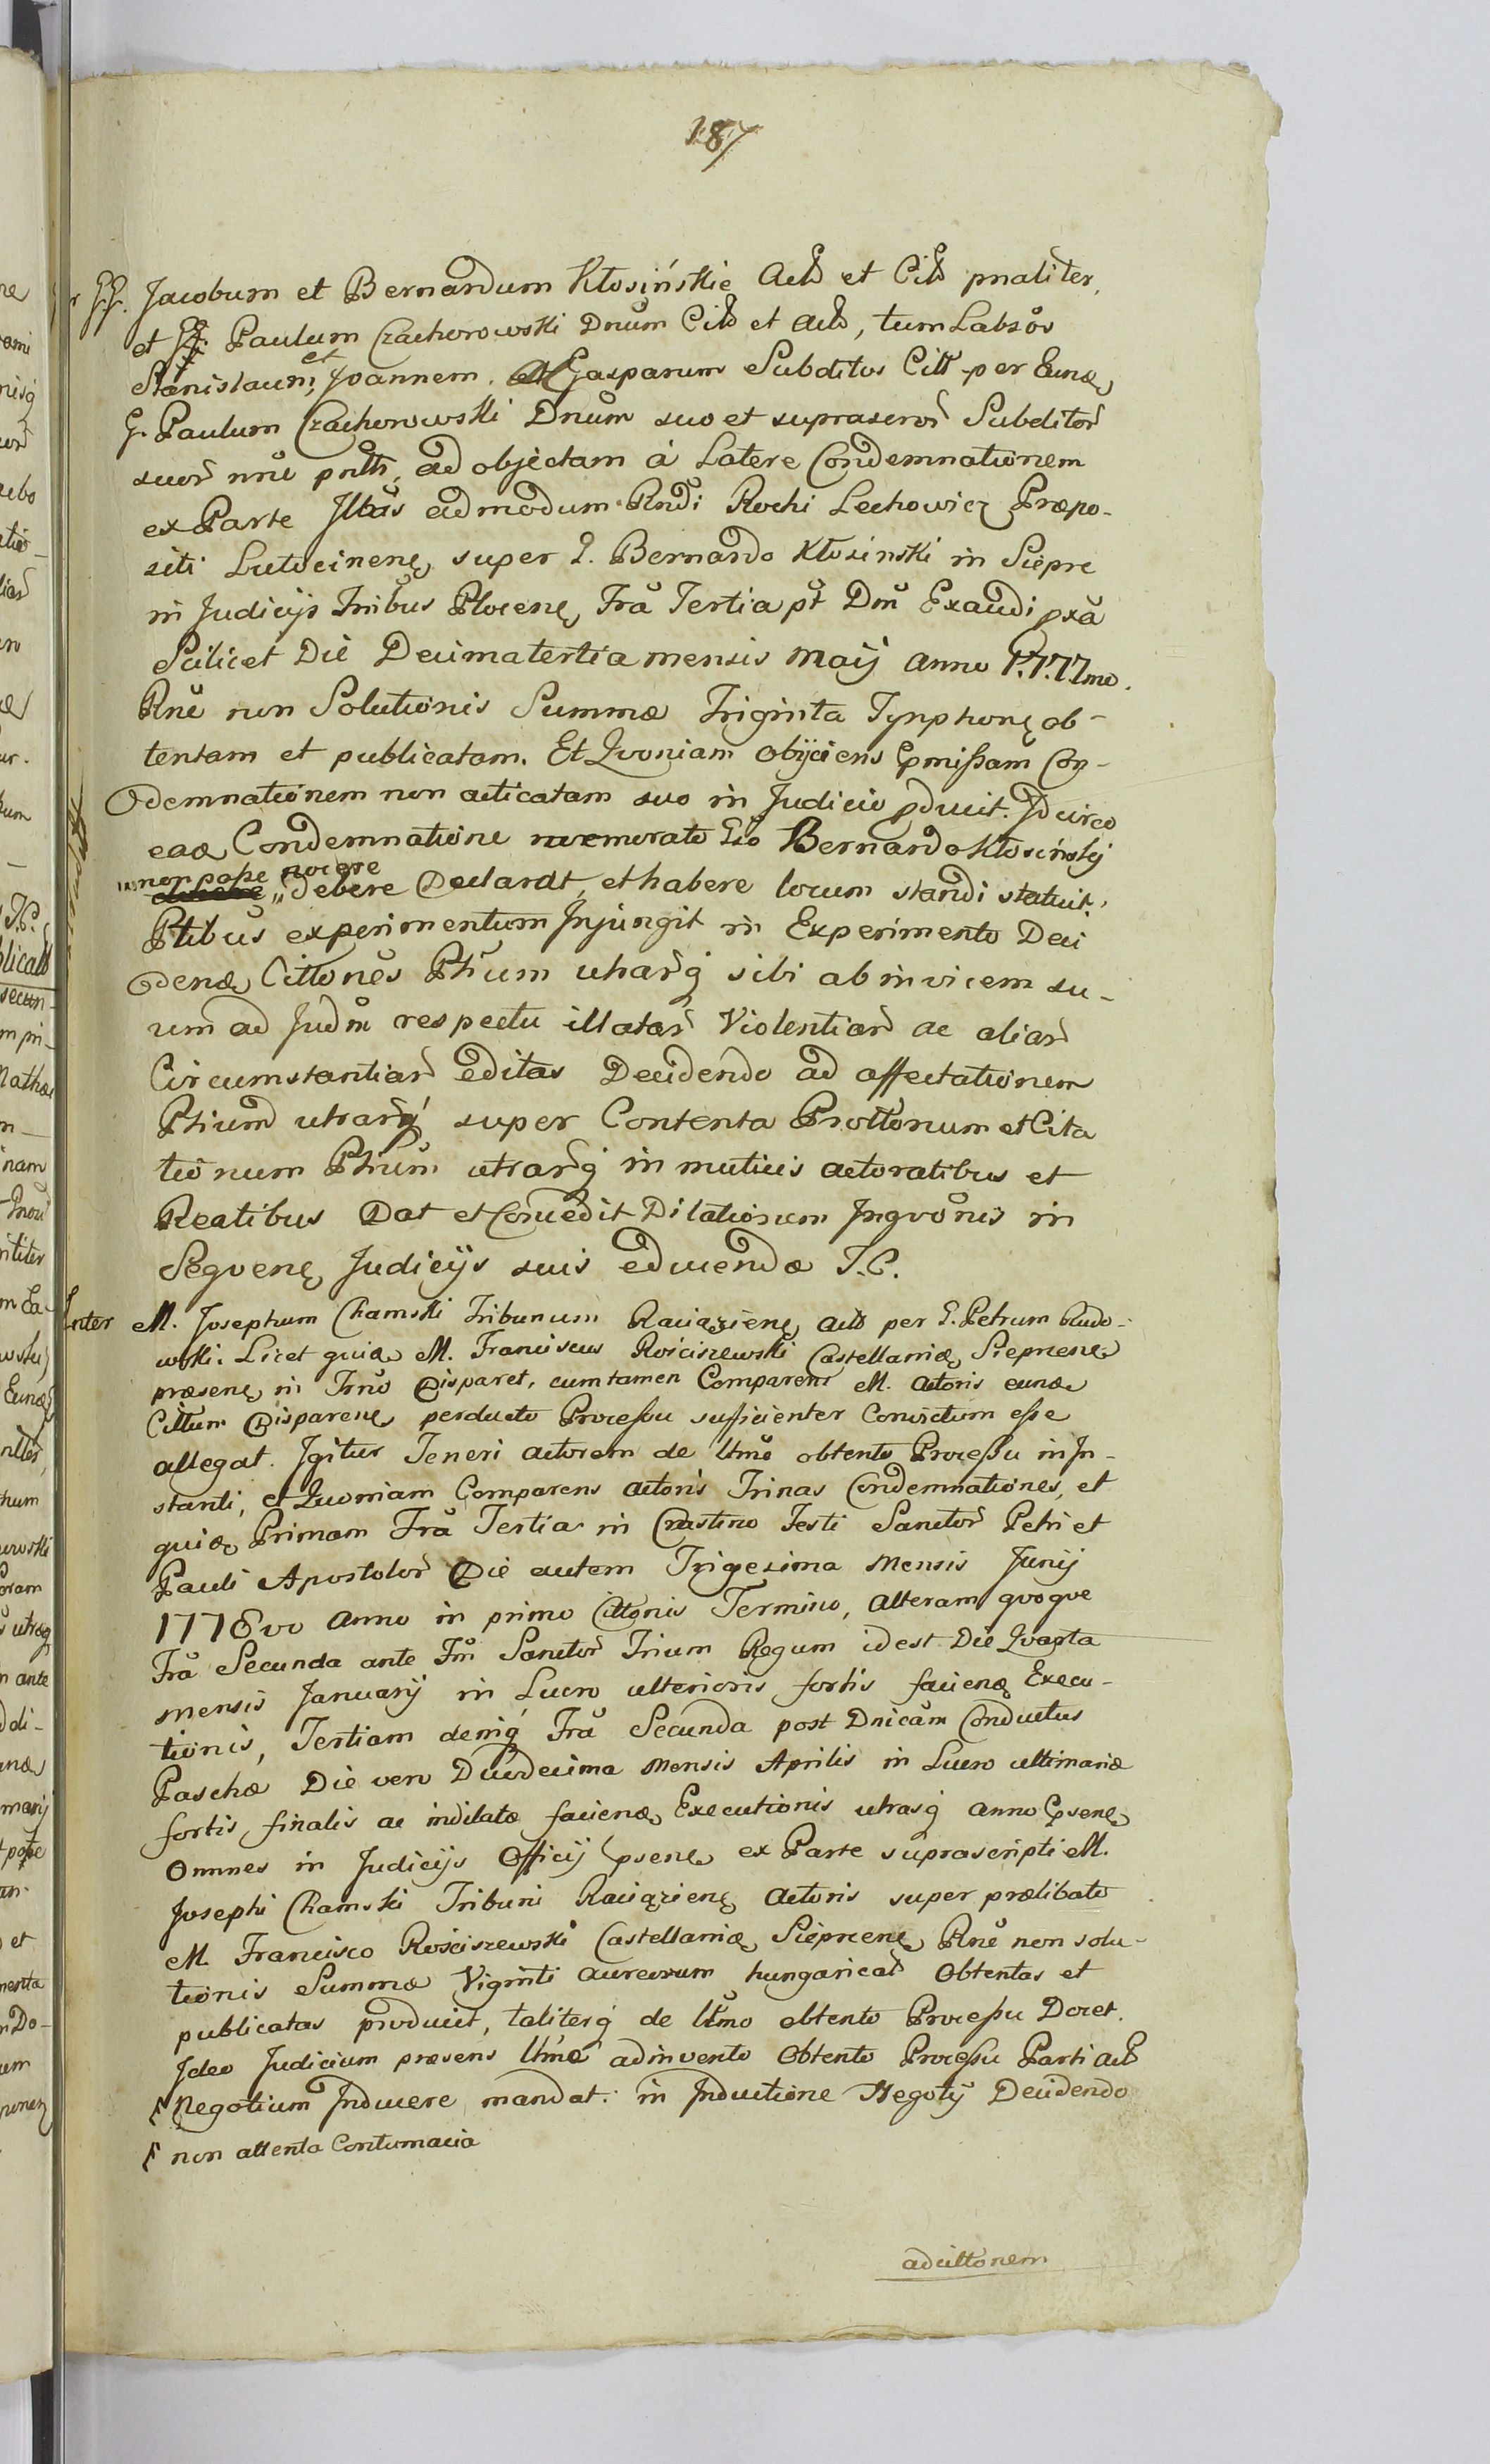 187
GG. Jacobum et Bernardum Kłosińskie Act et Cit pnaliter,
et G. Paulum Czachorowski Dnum Cit et Act, tum Labsos
Stanislaum, et Joannem, Gasparum Subditos Citt per Eund
G. Paulum Czachorowski Dnum suo et suprascror Subditor
suor nne pntt, ad objectam à Latere Condemnationem
ex Parte Illus admodum Rndi Rochi Lechowicz Præpo-
siti Lutocinenę super G. Bernardo Kłosinski in Siepre
in Judicijs Tribus Plocenę Fra Tertia pt Dm Exaudi pxa
Scilicet Die Decimatertia mensis Maij Anno 1777mo.
Rne non Solutionis Summæ Triginta Tynphonę ob-
tentam et publicatam. Et Qvoniam Obijciens pmissam Con-
demnationem non acticatam suo in Judicio pduxit. Idcirco
eadę Condemnatione memorato Gso Bernardo Kłosińskij
non posse nocere debere Declarat, et habere locum standi statuit.
Ptibus experimentum Injungit in Experimento Deci
dendę Cittones Ptium utrarq sibi ab invicem su-
um ad Judm respectu illatar Violentiar ac aliar
Circumstantiar editas Decidendo ad affectationem
Ptium utrarq super Contenta Prottonum et Cita
tionum Ptium utrarq in mutuis actoratibus et
Reatibus Dat et Concedit Dilationem Inqvonis in
Seqvenę Judicijs suis educendæ S.C.
Inter M. Josephum Chamski Tribunum Raciąźienę Act per G. Petrum Rudo-
wski. Licet quidę M. Franciscus Rościszewski Castellanidę Sieprcenę
præsenę in Trno Disparet, cum tamen Comparens M. Actoris eundę
Cittum Disparenę perducto Processu sufficienter Convictum esse
allegat. Igitur Teneri actorem de ltmo obtento Processu in In-
stanti, et Quoniam Comparens Actoris Trinas Condemnationes, et
quidę Primam Fra Tertia in Crastino Festi Sanctor Petri et
Pauli Apostolor Die autem Trigesima Mensis Junij
1778vo Anno in primo Cittonis Termino, Alteram qvoqve
Fra Secunda ante Fm Sanctor Trium Regum idest Die Qvarta
mensis Januarij in Lucro ulterioris fortis faciendę Execu-
tionis, Tertiam deniq Fra Secunda post Dnicam Conductus
Paschæ Die vero Duodecima Mensis Aprilis in Lucro ultimariæ
fortis finalis ac indilatæ faciendę Executionis utrasq anno psenę
Omnes in Judicijs Officij psenę ex Parte suprascripti M.
Josephi Chamski Tribuni Raciązienę Actoris super prælibato
M. Francisco Rościszewski Castellanidę Sieprcenę Rne non solu-
tionis Summæ Viginti aureorum hungaricał Obtentas et
publicatas producit, taliterq de ltmo obtento Processu Docet.
Ideo Judicium præsens ltme adinvento Obtento Processu Parti Act
Negotium Inducere mandat: in Inductione Negotij Decidendo
non attenta Contumacia
ad cittonem